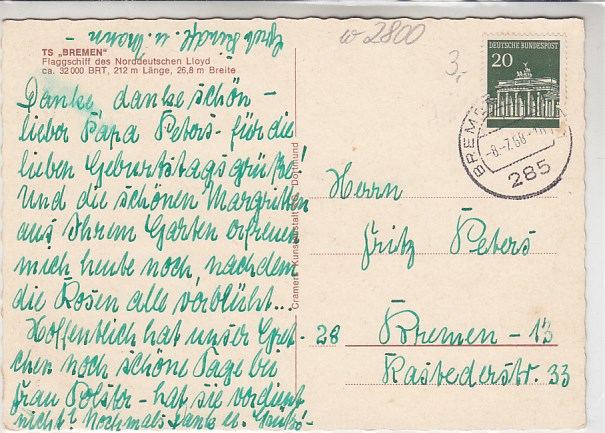 TS „BREMEN"
Flaggschiff des Norddeutschen Lloyd
ca. 32 000 BRT, 212 m Länge, 26,8 m Breite
Danke, danke schön -
lieber Papa Peters - für die
lieben Geburtstagsgrüße
und die schönen Margriten
aus Ihrem Garten erfreuen
mich heute noch, nachdem
die Rosen alle verblüht...
Hoffentlich hat unser Gret-
chen noch schöne Tage bei
Frau Polster - hat sie verdient
nicht? Nochmals Danke u. Grüße -
u. Mann
Cramers Kunstanstalt KG, Dortmund
w 2800
3,-
DEUTSCHE BUNDESPOST
20
BREMEN
-8.-7.68
285
Herrn
Fritz Peters
28 Bremen - 13
Rastederstr. 33